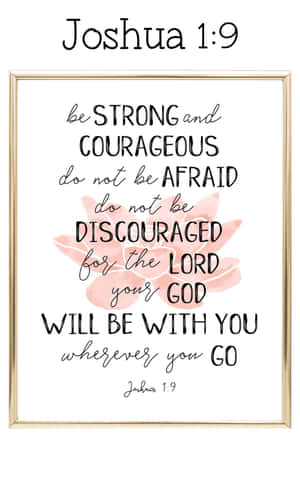 Joshua 1:9
be STRONG and
COURAGEOUS
do not be AFRAID
do not be
DISCOURAGED
for the LORD
your GOD
WILL BE WITH YOU
wherever you GO
Joshua 1:9